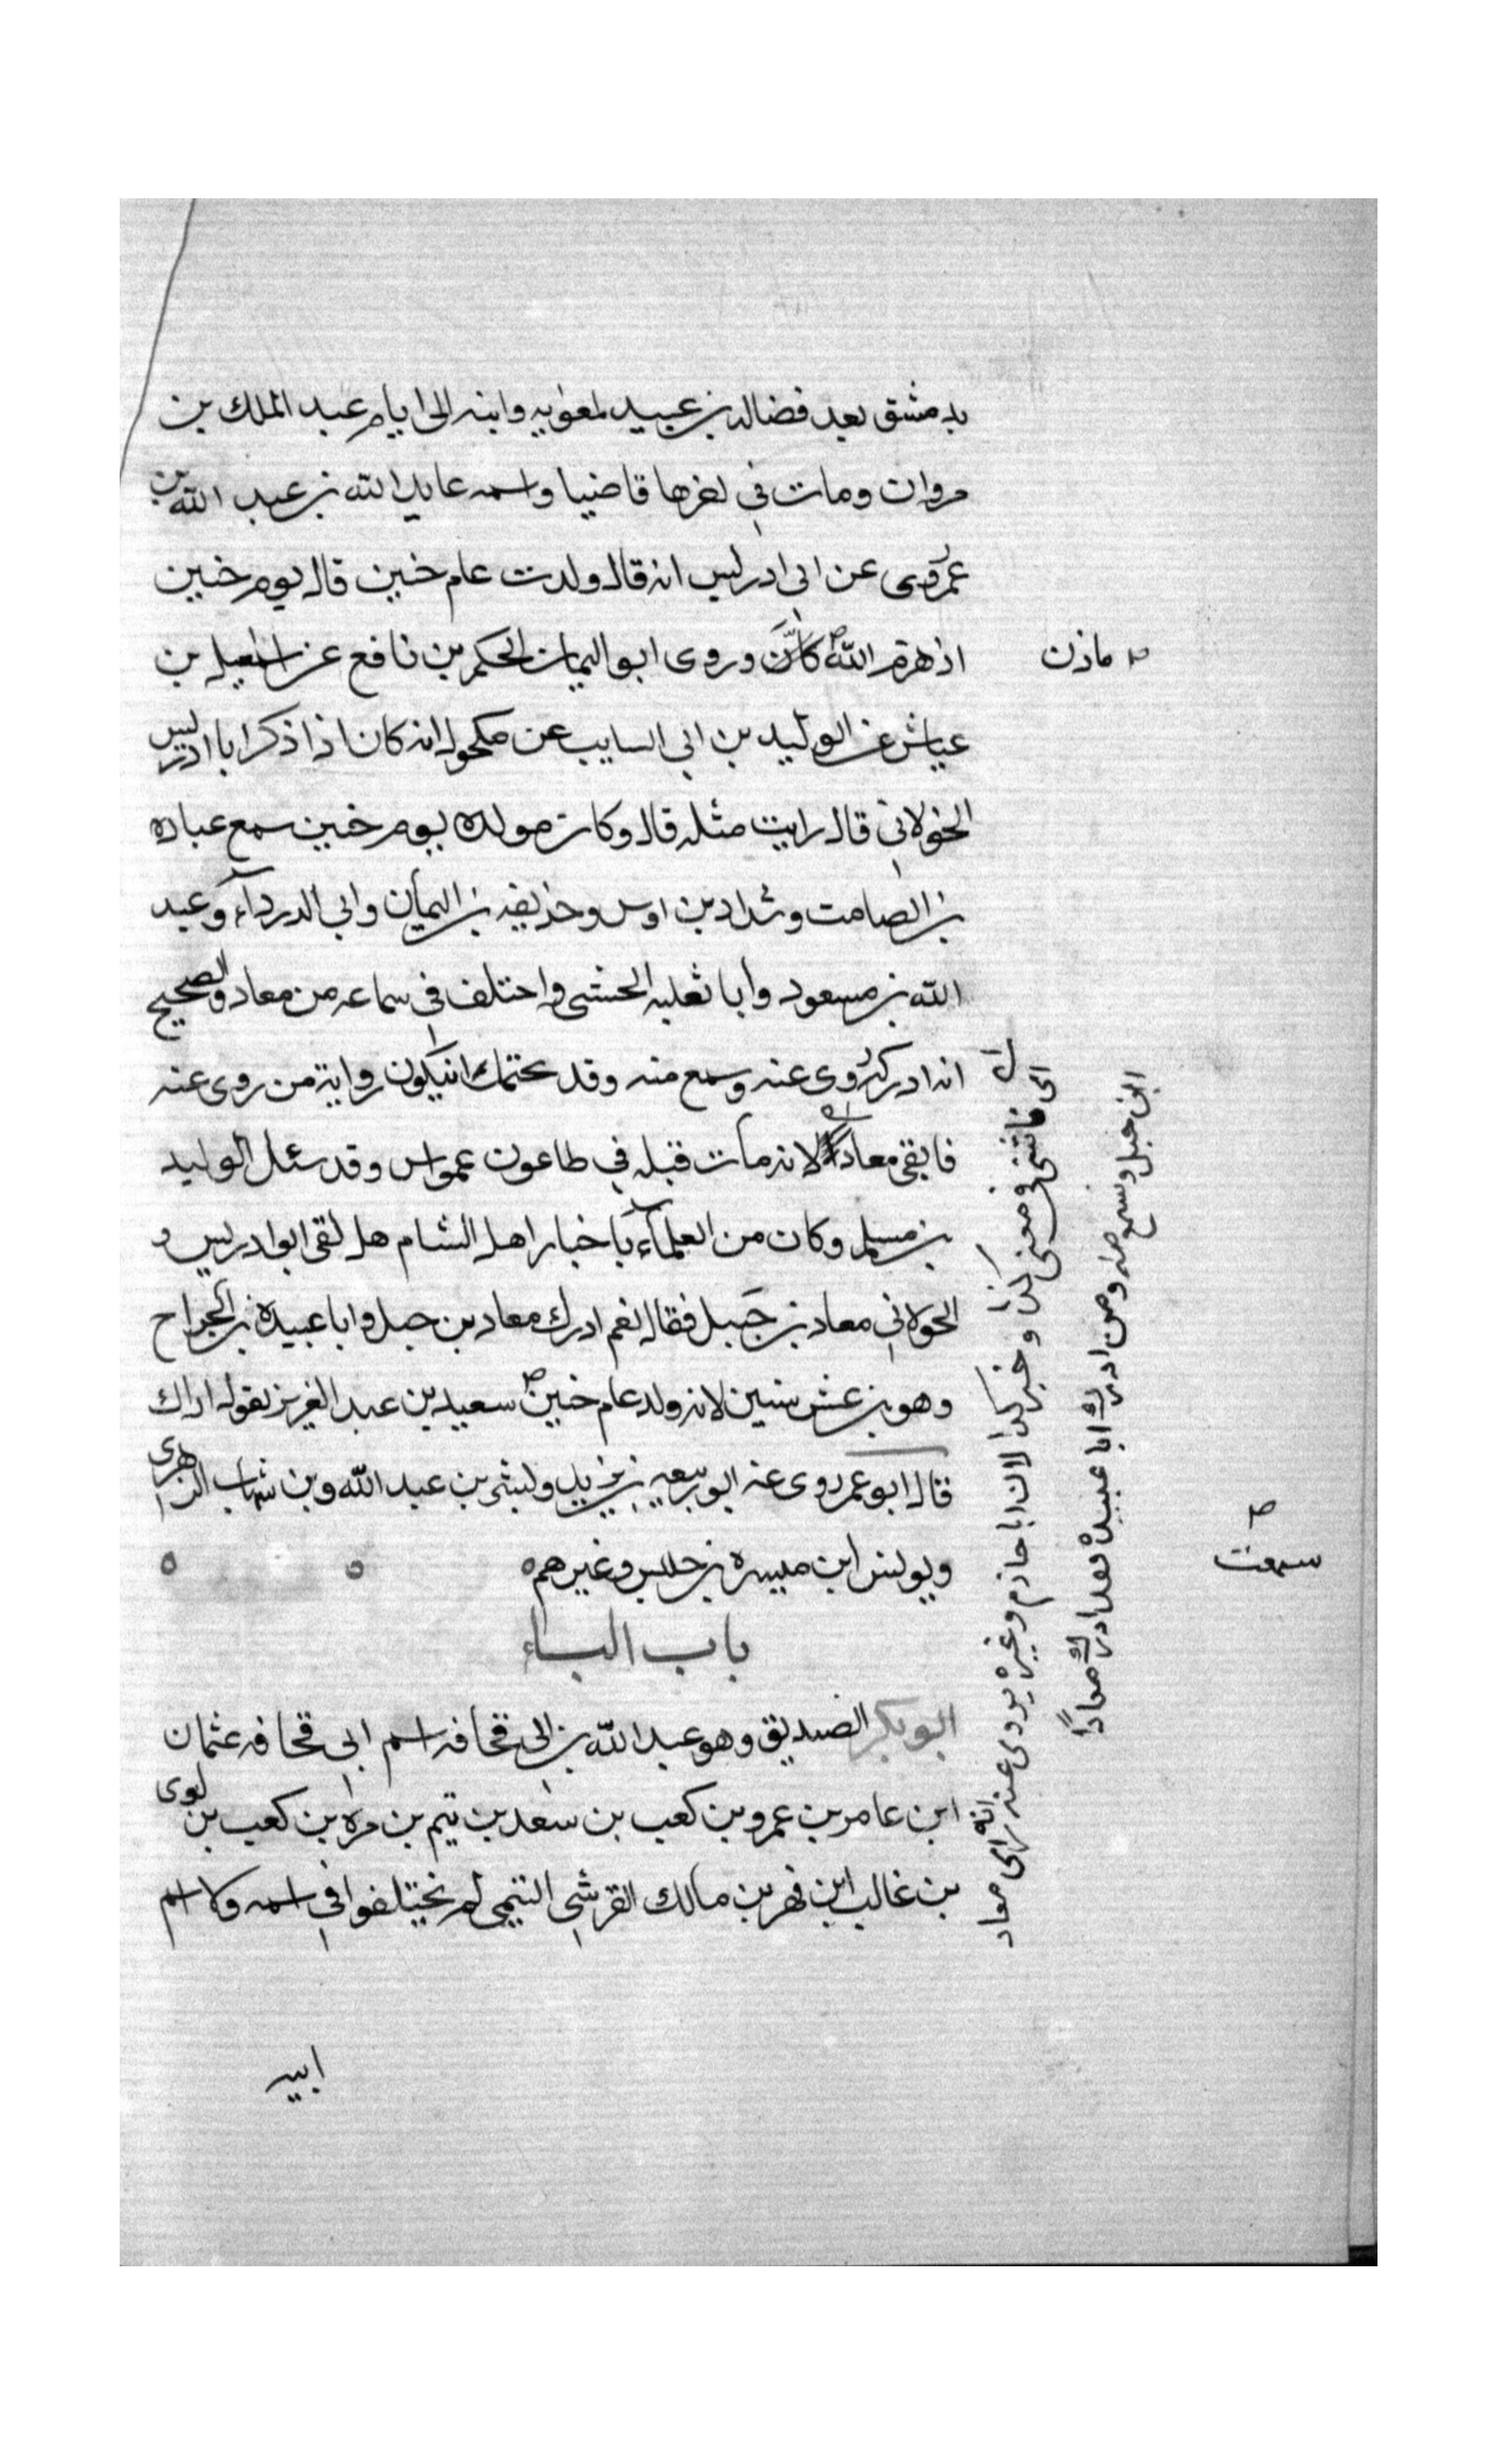 بدمشق بعد فضاله بن عبيد لمعويه وابنه الى ايام عبد الملك بن
مروان ومات في اخرها قاضيا واسمه عايد الله بن عبد الله بن
عمر روى عن ابى ادريس انه قال ولدت عام حنين قال يوم حنين
اذ هزم الله وروى ابو اليمان الحكم بن نافع عن اسمعيل بن
مازن
عياش عن الوليد بن ابي السايب عن مكحول انه كان اذا ذكر ابا ادريس
الخولاني قال رايت مثله قال وكان مولده يوم حنين سمع عباده
بن الصامت وشداد بن اوس وحذيفه بن اليمان وابي الدرداء وعبد
الله بن مسعود وابا ثعلبه الخشنى واختلف في سماعه من معاد والصحيح
انه ادركه روى عنه وسمع منه وقد يحتمل ان يكون رواية من روى عنه
فاتنى معاد لانه مات قبله في طاعون عمواس وقد سئل الوليد
بن مسلم وكان من العلماء باخبار اهل الشام هل لقى ابو ادريس
الخولاني معاد بن جَبل فقال نعم ادرك معاد بن جبل وابا عبيدة بن الجراح
وهو بن عشر سنين لانه ولد عام حنين سعيد بن عبد العزيز يقول
سمعت
قال ابو عمر روى عنه ربيعه بن يزيد وبشر بن عبد الله وبن شهاب الزهرى
ويونس ابن ميسره بن حلبس وغيرهم
باب الباء
ابو بكر الصديق وهو عبد الله بن ابى قحافه اسم ابى قحافه عثمان
ابن عامر بن عمرو بن كعب بن سعد بن تيم بن مره بن كعب بن لوى
بن غالب ابن فهر بن مالك القرشى التيمى لم يختلفوا في اسمه ولا اسم
ابيه
اى فاتنى في معنى كذا وخبر كذا لان ابا حازم وغيره يروى عنه انه راى معاد
ابن جبل وسمع منه ومن ادرك ابا عبيدة فقد ادرك معاداً